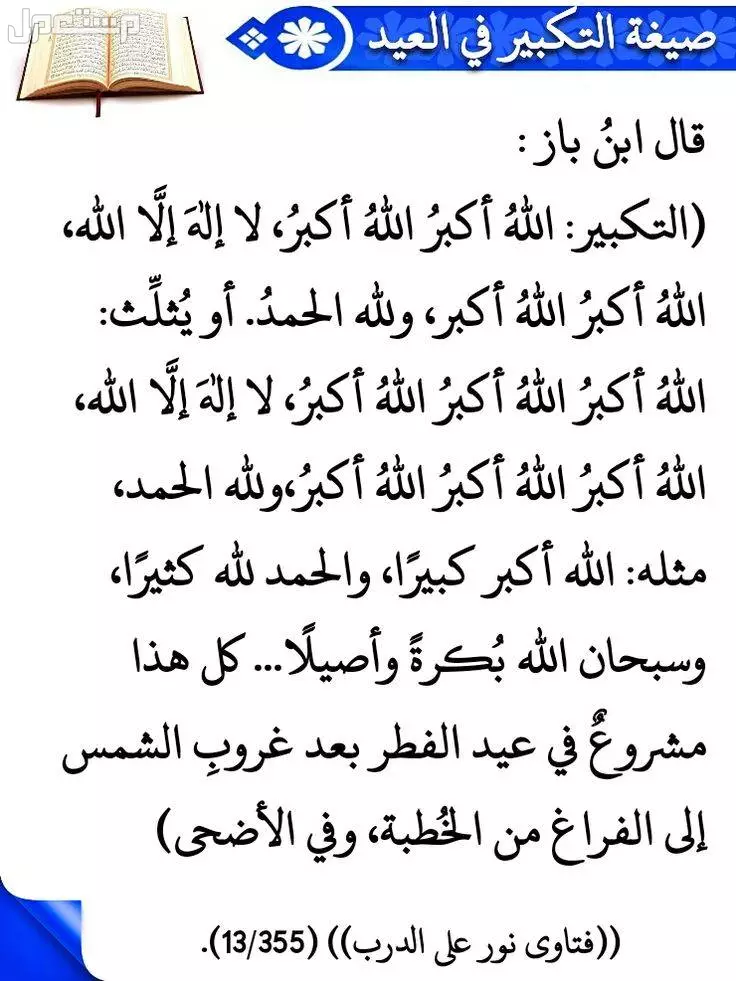 مستعمل
صيغة التكبير في العيد
قال ابنُ باز :
(التكبير: اللهُ أكبرُ اللهُ أكبرُ، لا إلهَ إلَّا الله،
اللهُ أكبرُ اللهُ أكبر، ولله الحمدُ. أو يُثلِّث:
اللهُ أكبرُ اللهُ أكبرُ اللهُ أكبرُ، لا إلهَ إلَّا الله،
اللهُ أكبرُ اللهُ أكبرُ اللهُ أكبرُ،ولله الحمد،
مثله: الله أكبر كبيرًا، والحمد لله كثيرًا،
وسبحان الله بُكرةً وأصيلًا... كل هذا
مشروعٌ في عيد الفطر بعد غروبِ الشمس
إلى الفراغ من الخُطبة، وفي الأضحى)
((فتاوى نور على الدرب)) (13/355).